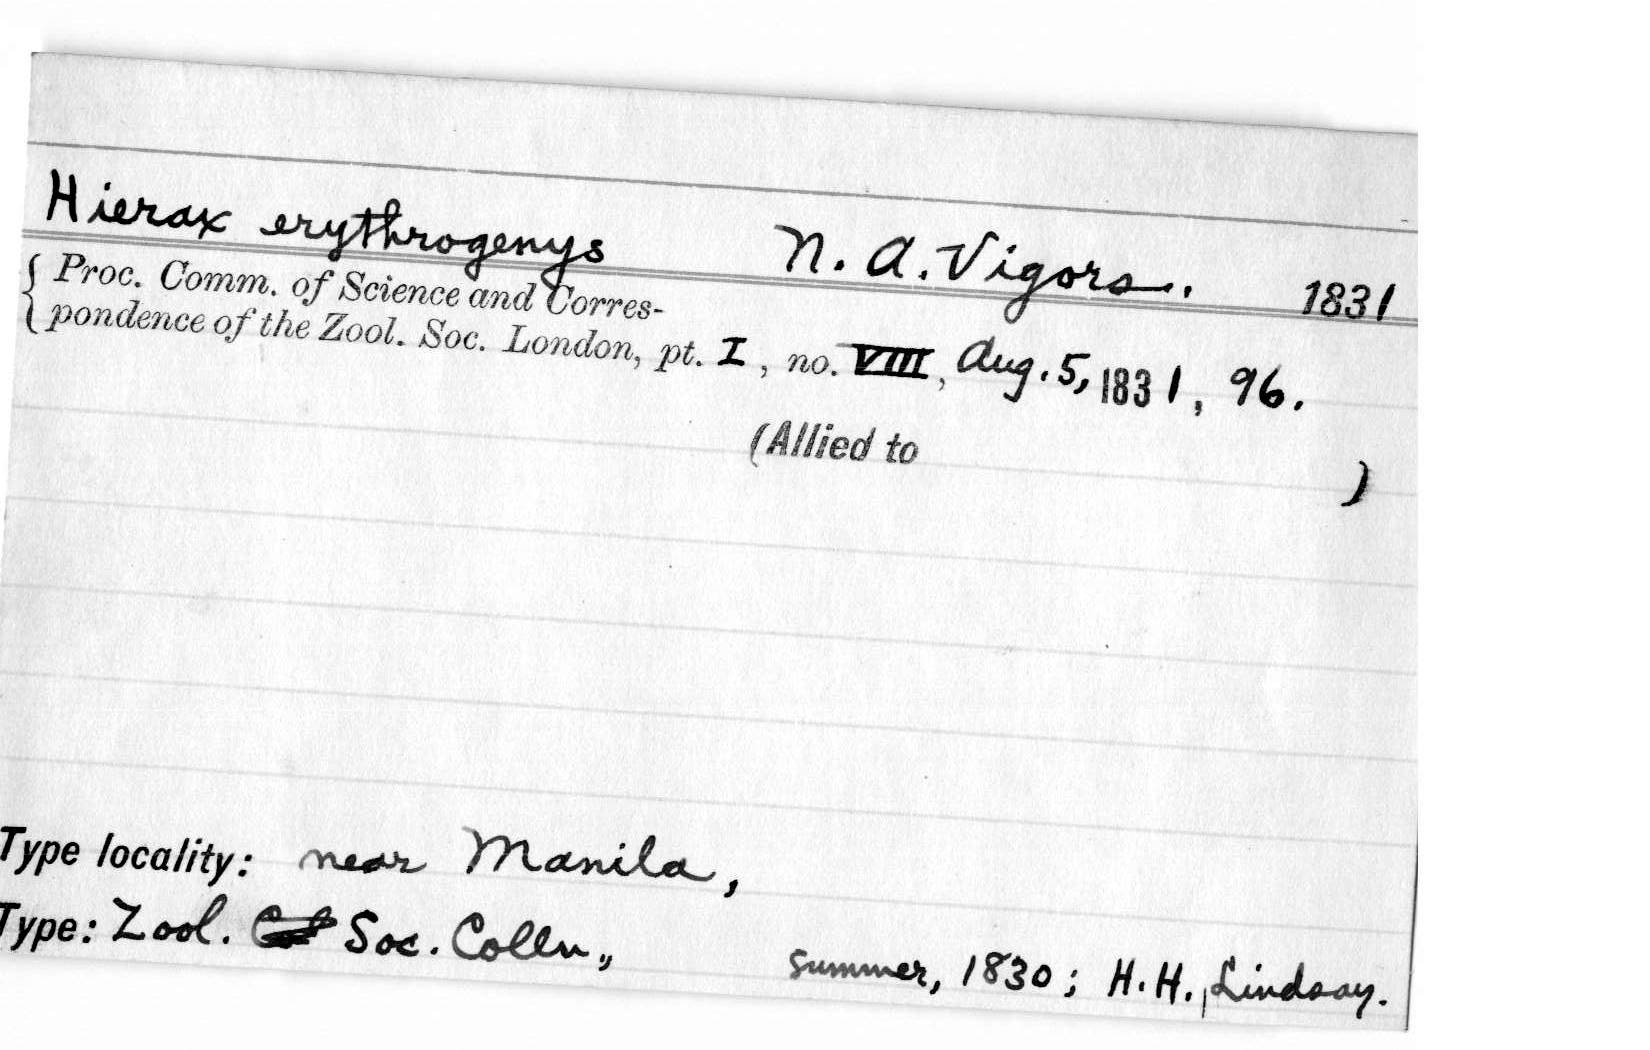 Hierax erythrogenys N. A. Vigors. 1831
{ Proc. Comm. of Science and Corres-
pondence of the Zool. Soc. London, pt. I, no. VIII, Aug. 5, 1831, 96.
(Allied to )
Type locality: near Manila,
Type: Zool. Soc. Colln., summer, 1830; H. H. Lindsay.